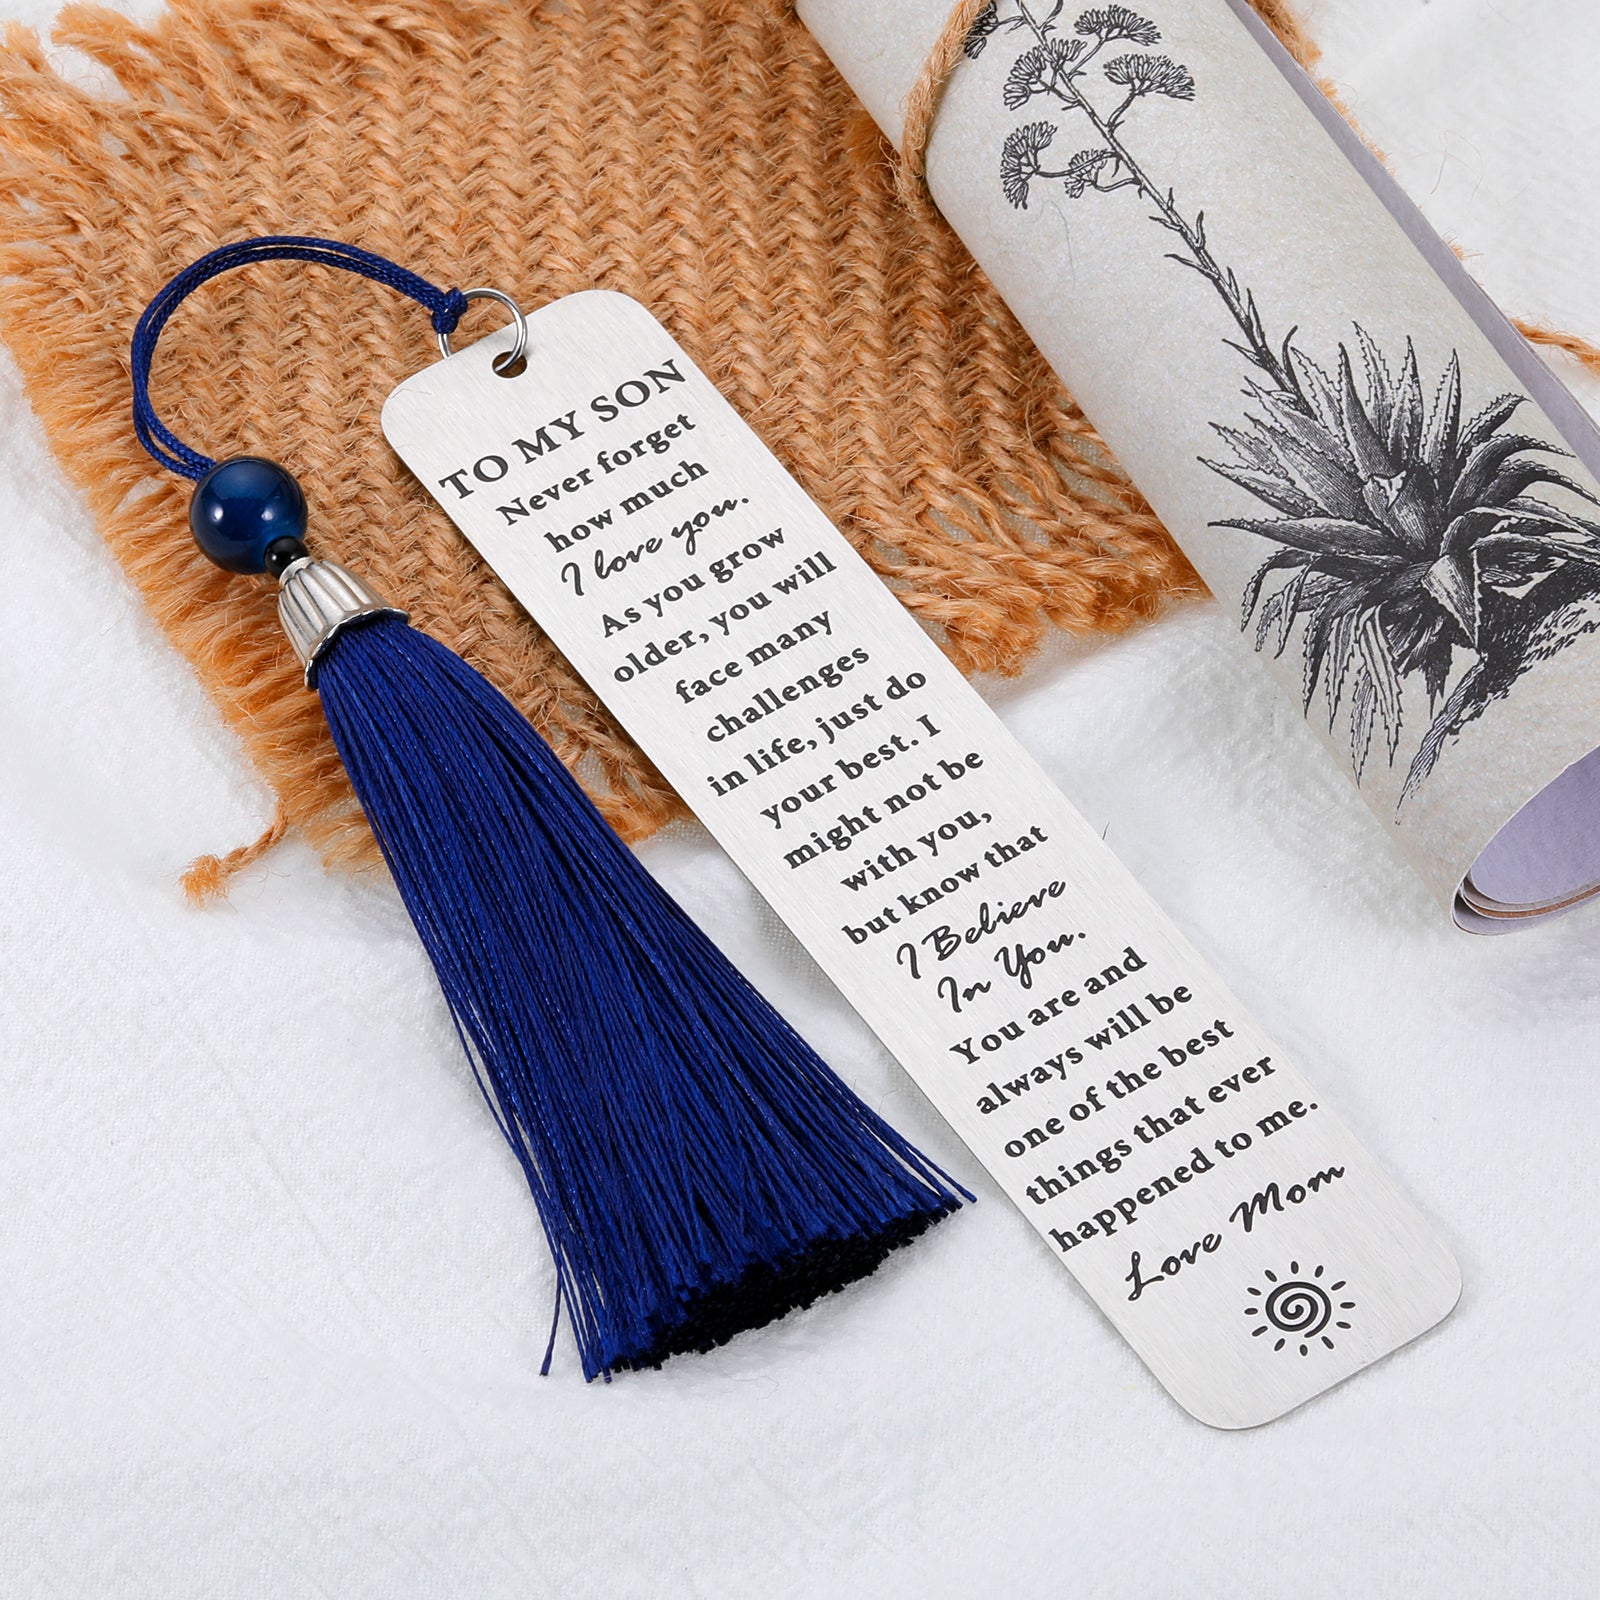 TO MY SON
Never forget
how much
I love you.
As you grow
older, you will
face many
challenges
in life, just do
your best. I
might not be
with you,
but know that
I Believe
In You.
You are and
always will be
one of the best
things that ever
happened to me.
Love Mom